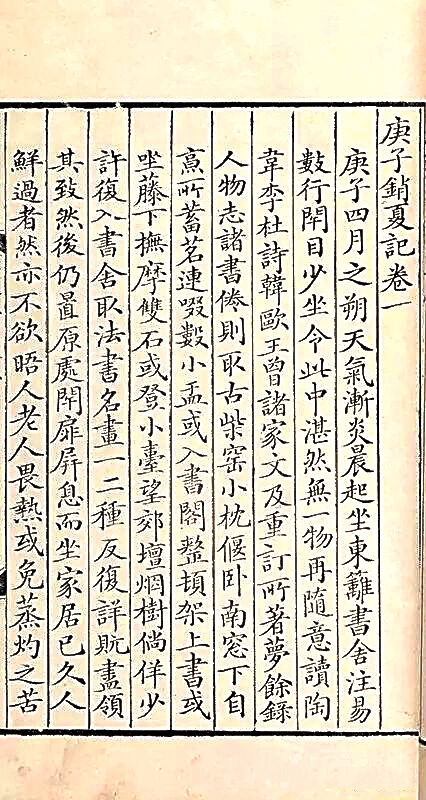 庚子銷夏記卷一
庚子四月之朔天氣漸炎晨起坐東籬書舍注易
數行閉目少坐令此中湛然無一物再隨意讀陶
韋李杜詩韓歐王曾諸家文及重訂所著夢餘錄
人物志諸書倦則取古柴窑小枕偃卧南窓下自
烹所蓄茗連啜數小盂或入書閣整頓架上書或
坐藤下撫摩雙石或登小臺望郊壇烟樹倘佯少
許復入書舍取法書名畫一二種反復詳玩盡領
其致然後仍置原處閉扉屏息而坐家居已久人
鮮過者然亦不欲晤人老人畏熱或免蒸灼之苦